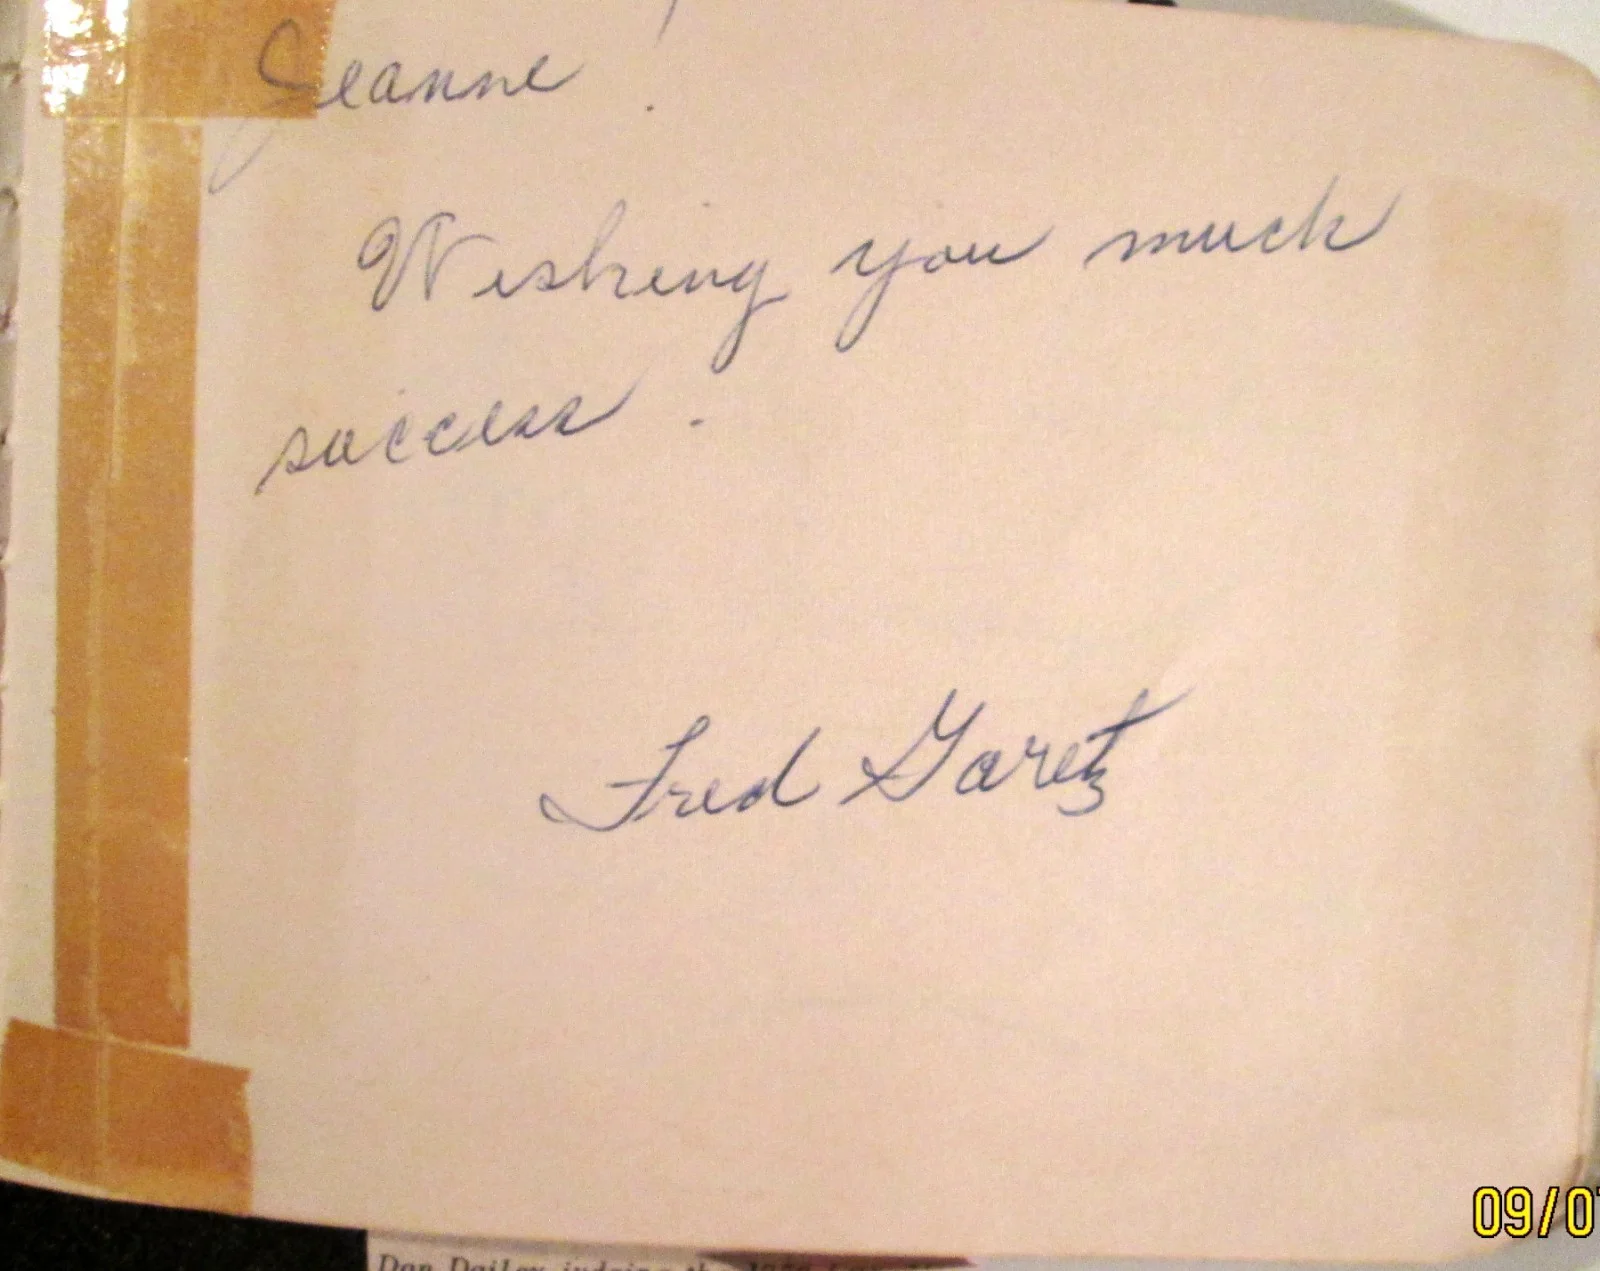 Jeanne!
Wishing you much
success.
Fred Garetz
09/0
Dan Dailey judging the